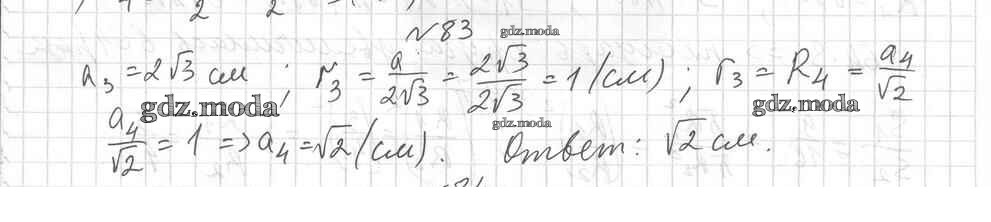 2 2
№83 gdz.moda
a₃ = 2√3 см ; r₃ = a/2√3 = 2√3/2√3 = 1 (см) ; r₃ = R₄ = a₄/√2
gdz.moda gdz.moda gdz.moda
a₄/√2 = 1 => a₄ = √2 (см). Ответ: √2 см.